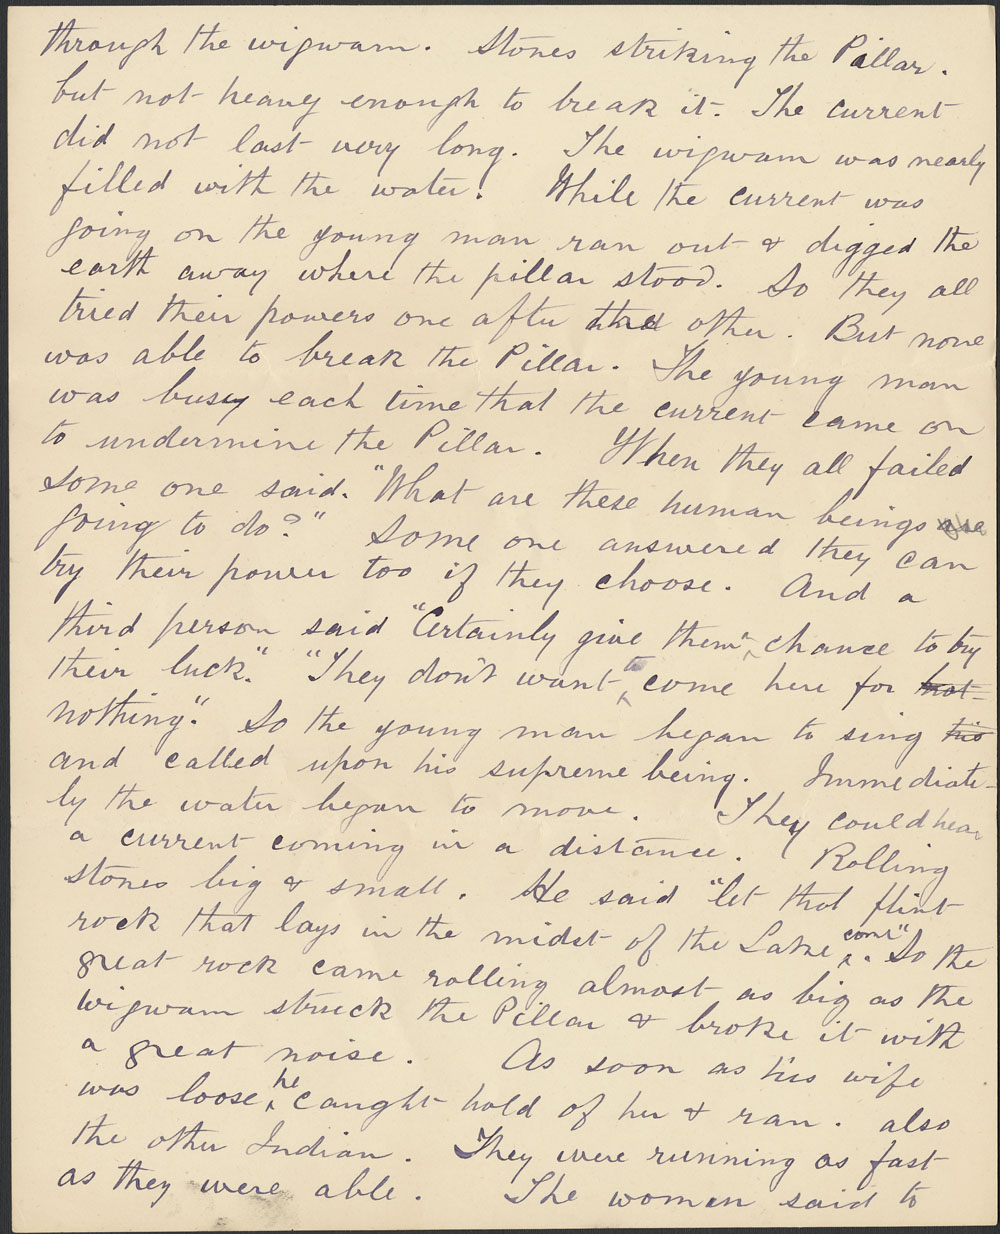 through the wigwam. Stones striking the Pillar.
but not heavy enough to break it. The current
did not last very long. The wigwam was nearly
filled with the water. While the current was
going on the young man ran out & digged the
earth away where the pillar stood. So they all
tried their powers one after the other. But none
was able to break the Pillar. The young man
was busy each time that the current came on
to undermine the Pillar. When they all failed
some one said. "What are these human beings
going to do?" Some one answered they can
try their power too if they choose. And a
third person said "Certainly give them a chance to try
their luck." "They don't want to come here for not
nothing." So the young man began to sing his
and called upon his supreme being. Immediate-
ly the water began to move. They could hear
a current coming in a distance. Rolling
stones big & small. He said "let that flint
rock that lays in the midst of the Lake come". So the
great rock came rolling almost as big as the
wigwam struck the Pillar & broke it with
a great noise. As soon as his wife
was loose, he caught hold of her & ran. also
the other Indian. They were running as fast
as they were able. The woman said to